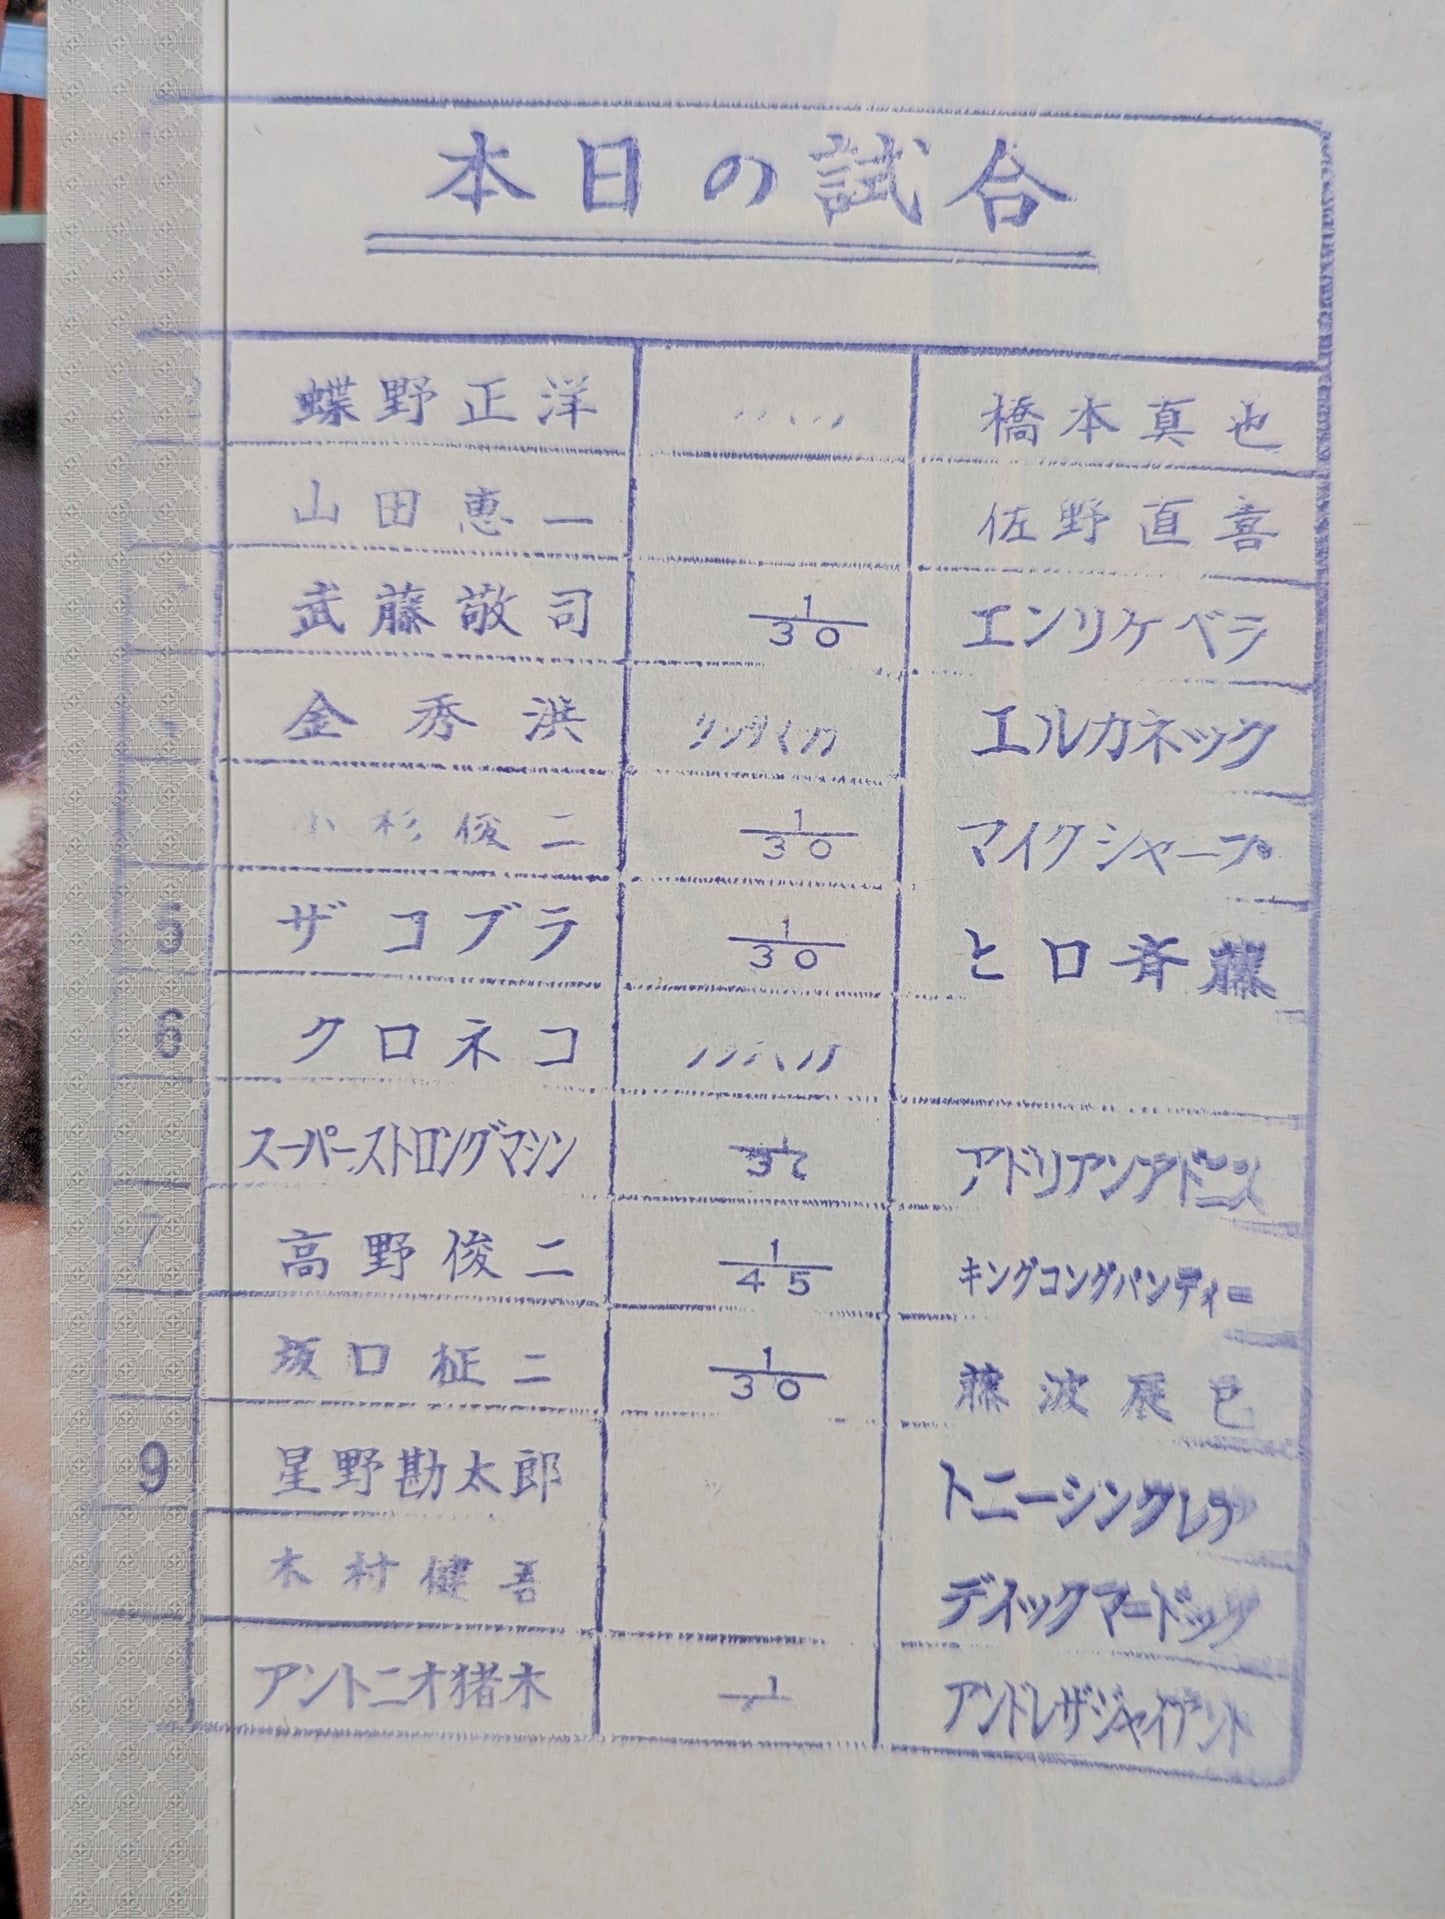 本日の試合
蝶野正洋 〃 橋本真也
山田恵一 佐野直喜
武藤敬司 1/30 エンリケベラ
金秀洪 〃 エルカネック
小杉俊二 1/30 マイクシャープ
5 ザコブラ 1/30 ヒロ斉藤
6 クロネコ 〃
スーパーストロングマシン アドリアンアドニス
7 高野俊二 1/45 キングコングバンディー
坂口征二 1/30 藤波辰巳
9 星野勘太郎 トニー
木村健吾 ディックマードック
アントニオ猪木 1 アンドレザジャイアント